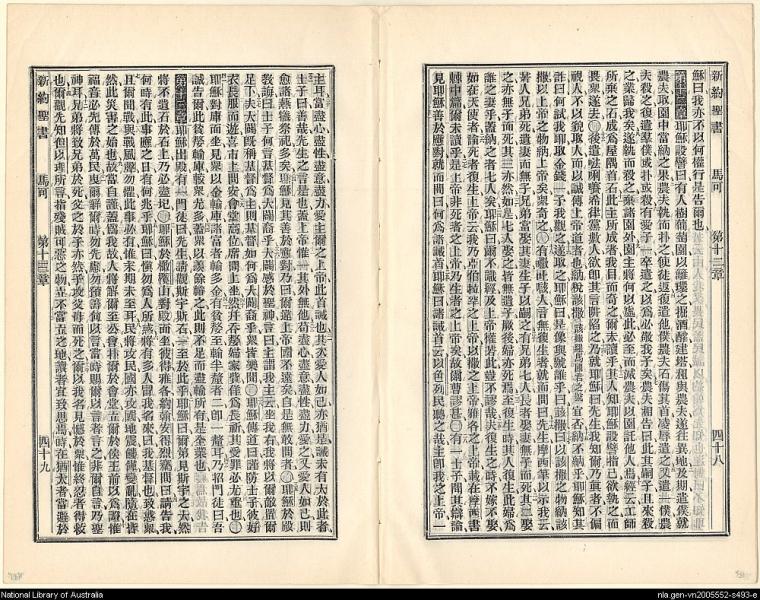 新約聖書 馬可 第十二章 四十八
穌曰我亦不以何權行是告爾也
第十二章 耶穌設譬曰有人樹葡萄園以籬環之掘酒醡建塔租與農夫遂往異地及期遣僕就
農夫取園中當納之果農夫執而扑之使徒返復遣他僕農夫石傷其首凌辱遣之又遣一僕農
夫殺之復遣羣僕或扑或殺有愛子一卒遣之以爲必敬我子矣農夫相告曰此其嗣子且來殺
之業歸我矣遂執而殺之棄諸園外園主將何以處此必至而滅農夫以園託他人焉經云工師
所棄之石成爲屋隅首石此主所成者我目而奇之爾未讀乎其人知耶穌設譬指己欲執之而
畏衆遂去○後遣希律黨數人欲即其言陷之乃就耶穌曰先生我知爾乃眞者不偏
視人不以貌取人而以誠傳上帝道者也納稅該撒宜否納不納乎耶穌知其
詐曰何試我即取金錢一予我觀之遂取之耶穌曰是像與號誰乎曰該撒曰以該撒之物納該
撒以上帝之物納上帝人衆奇之○有人言無復生者就而問曰先生摩西筆以示我云
若人兄弟死遺妻而無子兄弟當娶其妻生子以嗣之有兄弟七人長者娶妻無子而死其二娶
之亦無子而死其三亦然如是七人娶之皆無遺子厥後婦亦死焉至復生時其人復生此婦爲
誰之妻乎蓋納之者七人矣耶穌曰爾不識經及上帝權若此豈不謬哉夫復生之時不嫁不娶
如在天使者論死者復生上帝云我乃亞伯拉罕之上帝以撒之上帝雅各之上帝載在摩西書
棘中篇爾未讀乎是上帝非死者之上帝乃生者之上帝矣故爾曹謬甚○有一士子聞其辯論
見耶穌善於應對就而問曰何爲諸誡首耶穌曰諸誡首云以色列民聽之哉主即我之上帝一
主耳當盡心盡性盡意盡力愛主爾之上帝此首誡也其次愛人如己亦猶是誡未有大於此者
士子曰善哉先生之言是也蓋上帝惟一其外無他苟盡心盡意盡性盡力愛之又愛人如己則
愈諸燔犧祭祀多矣耶穌見其善於應對乃曰爾違上帝國不遠矣自是無敢問者○耶穌於殿
敎誨曰士子何言基督爲大闢裔乎大闢感於聖神言曰主謂我主云坐我右我將以爾敵置爾
足下夫大闢旣稱基督爲主則基督如何爲大闢裔乎衆皆樂聞○耶穌傳道曰謹防士子彼好
衣長服而遊喜市上問安會堂高位席間上坐然幷吞嫠婦家貲佯爲長祈其受罪必尤重也○
耶穌對庫而坐見衆以金輸庫諸富者輸多金有貧嫠至輸半釐者二即一釐耳乃招門徒曰吾
誠告爾此貧嫠輸庫較衆尤多蓋衆以羨餘輸之此則不足而盡輸所有是全業也
第十三章 耶穌出殿有一門徒曰先生請觀斯宇斯石一至於此乎耶穌曰爾第見斯宇之大然
將不遺石於石上乃必盡圮○耶穌於橄欖山對殿而坐彼得雅各約翰安得烈竊問曰請告我
何時有此事應之日有何兆乎耶穌曰愼勿爲人所惑將有多人冒我名來曰我基督也致惑衆
且爾聞戰與戰風聲勿懼此事必有惟末期未至耳民將攻民國亦攻國地震饑饉變亂隨在皆
然此災害之始也故當自謹蓋爲我故人將解爾至公會扑爾於會堂立爾於侯王前以爲證惟
福音必先傳於萬民曳爾解爾時勿先慮勿預籌何以言當時賜爾以言者言之非爾自言乃聖
神耳兄弟將致兄弟於死父之於子亦然子攻父母而死之爾以我名見憾於衆惟終忍者得救
也爾觀先知但以理所言指殘賊可惡之物立不當立之地讀者宜致思焉時在猶太者當避於
新約聖書 馬可 第十三章 四十九
National Library of Australia
nla.gen-vn2005552-s493-e